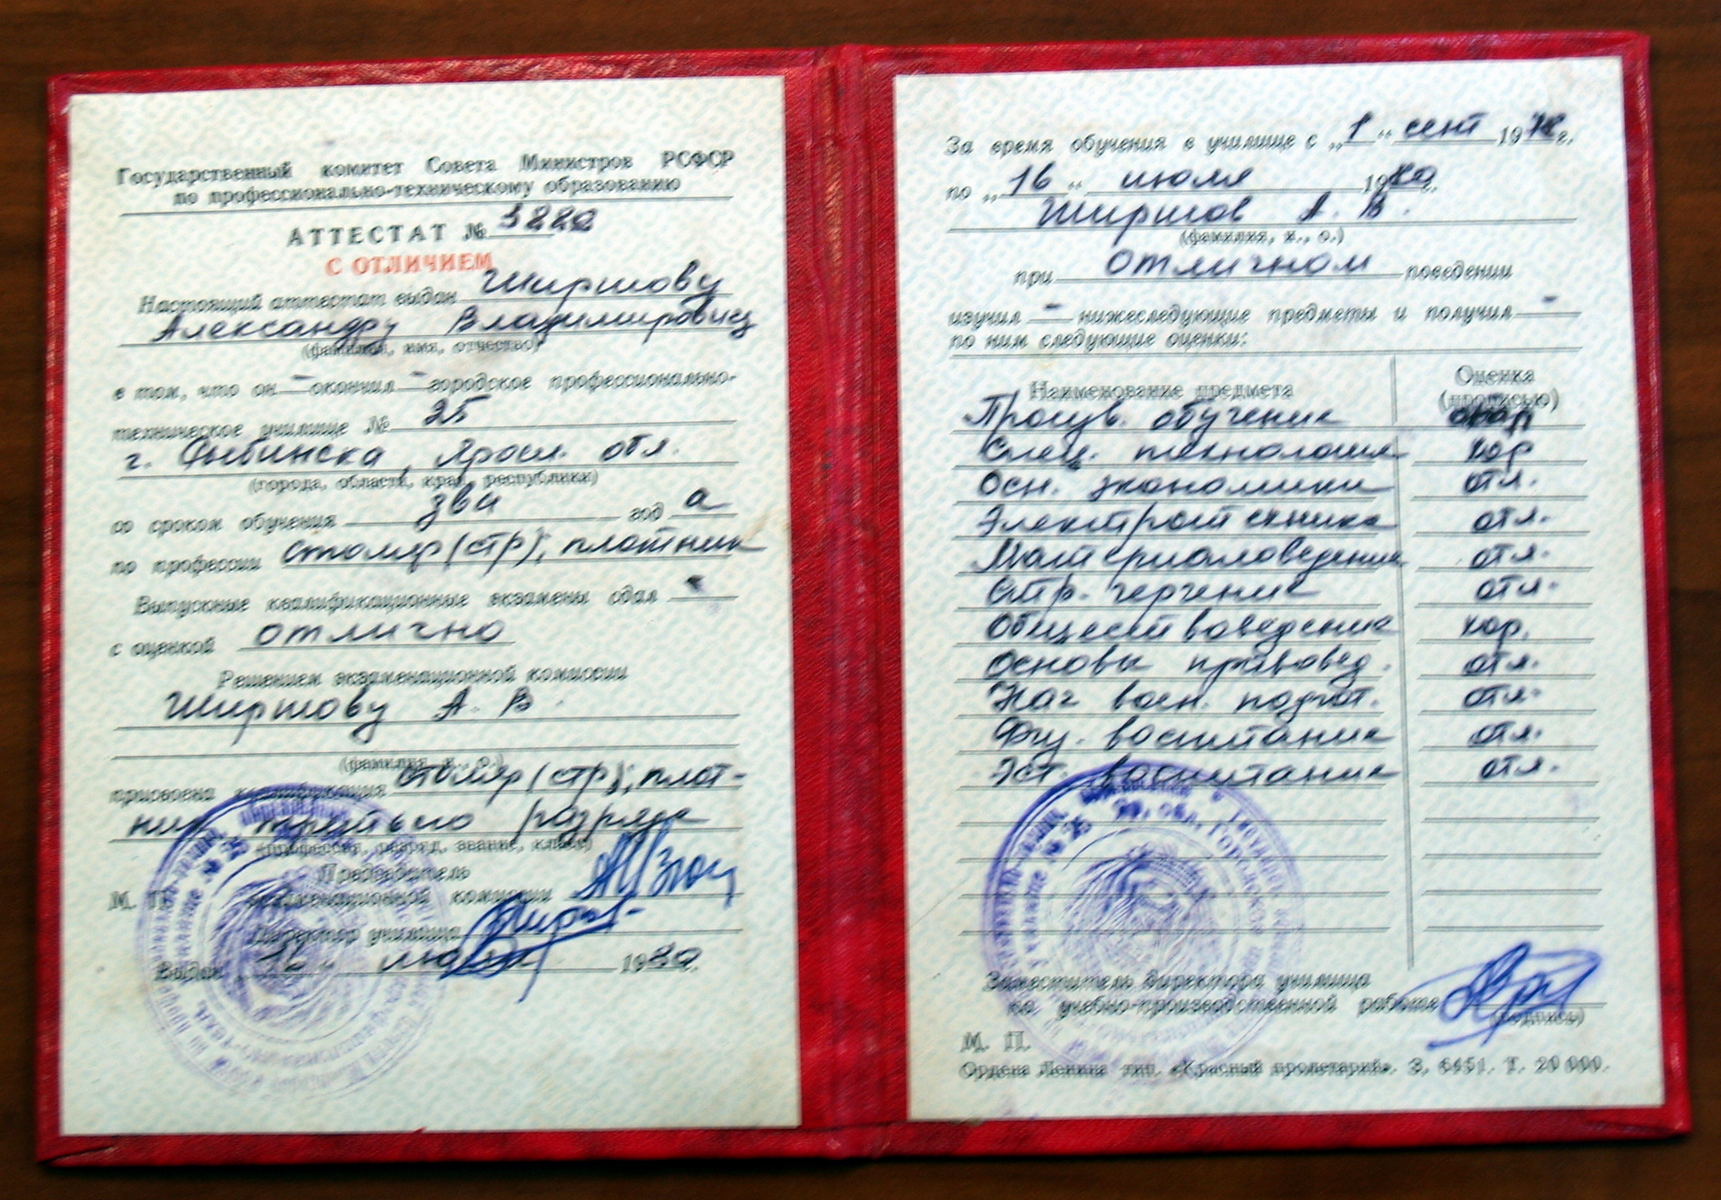 Государственный комитет Совета Министров РСФСР
по профессионально-техническому образованию
АТТЕСТАТ №
С ОТЛИЧИЕМ
Настоящий аттестат выдан Ширшову
Александру Владимирович
(фамилия, имя, отчество)
в том, что он - окончил - городское профессионально-
техническое училище № 25
г. Рыбинска, Яросл. обл.
(города, области, края, республики)
со сроком обучения два год а
по профессии столяр (стр), плотник
Выпускные квалификационные экзамены сдал -
с оценкой отлично
Решением экзаменационной комиссии
Ширшову А. В.
(фамилия, и., о.)
присвоена квалификация столяр (стр), плот-
ник, третьего разряда
(профессия, разряд, звание, класс)
Председатель
М. П. экзаменационной комиссии
Директор училища
Выдан 16 июля 1980 г.
За время обучения в училище с „1“ сент 1978 г.
по „16“ июля 1980 г.
Ширшов А. В.
(фамилия, и., о.)
при отличном поведении
изучил - нижеследующие предметы и получил -
по ним следующие оценки:
Наименование предмета Оценка (прописью)
Произв. обучение
Спец. технология хор
Осн. экономики отл.
Электротехника отл.
Материаловедение отл.
Стр. черчение отл.
Обществоведение хор.
Основы правовед. отл.
Нач. воен. подгот. отл.
Физ. воспитание отл.
Эст. воспитание отл.
Заместитель директора училища
по учебно-производственной работе
(подпись)
М. П.
Ордена Ленина тип. «Красный пролетарий». З. 6451. Т. 20 000.